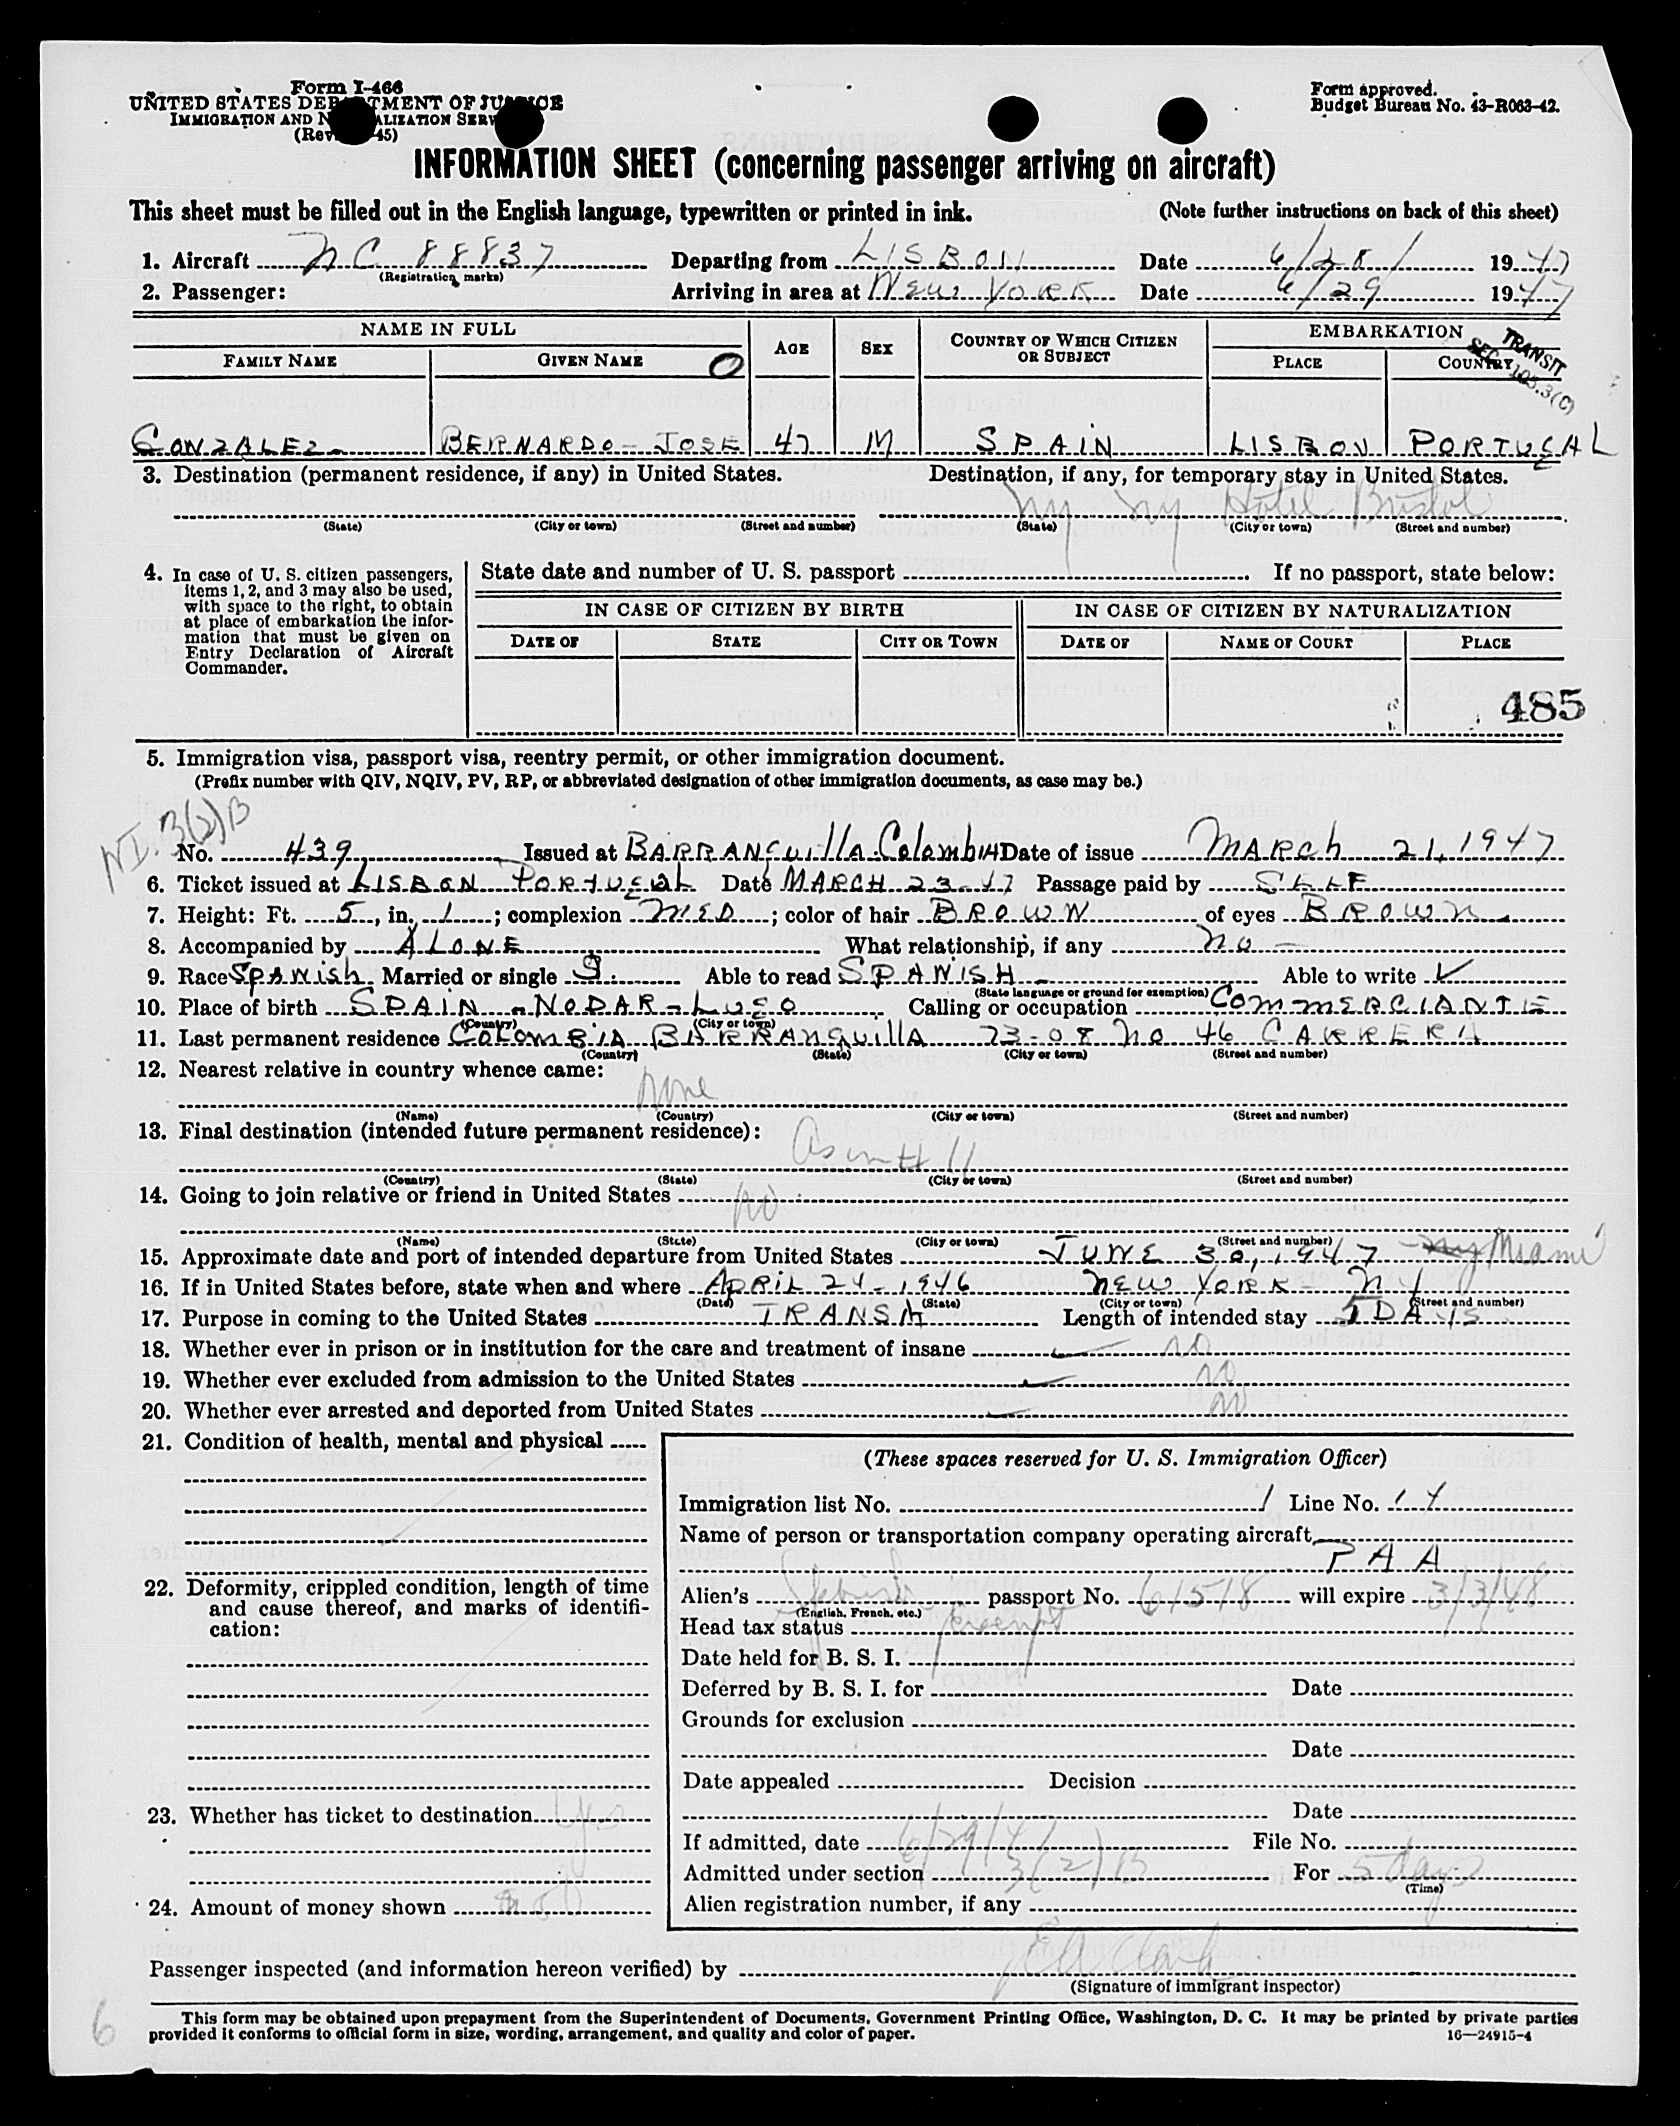 Form I-466
UNITED STATES DEPARTMENT OF JUSTICE
IMMIGRATION AND NATURALIZATION SERV
(Rev. 45)
Form approved.
Budget Bureau No. 43-R063-42.
INFORMATION SHEET (concerning passenger arriving on aircraft)
This sheet must be filled out in the English language, typewritten or printed in ink. (Note further instructions on back of this sheet)
1. Aircraft NC 88837 Departing from LISBON Date 6/28/ 1947
(Registration marks)
2. Passenger: Arriving in area at NEW YORK Date 6/29 1947
NAME IN FULL AGE SEX COUNTRY OF WHICH CITIZEN OR SUBJECT EMBARKATION
FAMILY NAME GIVEN NAME O PLACE COUNTRY
TRANSIT
SEC. 105.3(C)
GONZALEZ- BERNARDO-JOSE 47 M SPAIN LISBON PORTUGAL
3. Destination (permanent residence, if any) in United States. Destination, if any, for temporary stay in United States.
NY NY Hotel Bristol
(State) (City or town) (Street and number) (State) (City or town) (Street and number)
4. In case of U. S. citizen passengers, items 1, 2, and 3 may also be used, with space to the right, to obtain at place of embarkation the information that must be given on Entry Declaration of Aircraft Commander.
State date and number of U. S. passport If no passport, state below:
IN CASE OF CITIZEN BY BIRTH IN CASE OF CITIZEN BY NATURALIZATION
DATE OF STATE CITY OR TOWN DATE OF NAME OF COURT PLACE
485
5. Immigration visa, passport visa, reentry permit, or other immigration document.
(Prefix number with QIV, NQIV, PV, RP, or abbreviated designation of other immigration documents, as case may be.)
NI. 3(2)B
No. 439 Issued at BARRANQUILLA Colombia Date of issue MARCH 21, 1947
6. Ticket issued at LISBON PORTUGAL Date MARCH 23-47 Passage paid by SELF
7. Height: Ft. 5, in. 1; complexion MED; color of hair BROWN of eyes BROWN
8. Accompanied by ALONE What relationship, if any No -
9. Race SPANISH Married or single S. Able to read SPANISH - Able to write ✓
(State language or ground for exemption)
10. Place of birth SPAIN - NODAR - LUGO Calling or occupation COMMERCIANTE
(Country) (City or town)
11. Last permanent residence COLOMBIA BARRANQUILLA 73-08 No 46 CARRERA
(Country) (State) (City or town) (Street and number)
12. Nearest relative in country whence came:
None
(Name) (Country) (City or town) (Street and number)
13. Final destination (intended future permanent residence):
As in # 11
(Country) (State) (City or town) (Street and number)
14. Going to join relative or friend in United States no
(Name) (State) (City or town) (Street and number)
15. Approximate date and port of intended departure from United States JUNE 30, 1947 - NY Miami
16. If in United States before, state when and where APRIL 24-1946 NEW YORK - NY
(Date) (State) (City or town) (Street and number)
17. Purpose in coming to the United States TRANSIT Length of intended stay 5 DAYS
18. Whether ever in prison or in institution for the care and treatment of insane no
19. Whether ever excluded from admission to the United States no
20. Whether ever arrested and deported from United States no
21. Condition of health, mental and physical
22. Deformity, crippled condition, length of time and cause thereof, and marks of identification:
23. Whether has ticket to destination yes
24. Amount of money shown
(These spaces reserved for U. S. Immigration Officer)
Immigration list No. 1 Line No. 14
Name of person or transportation company operating aircraft
PAA
Alien's Spanish passport No. 61518 will expire 3/3/48
(English, French, etc.)
Head tax status exempt
Date held for B. S. I.
Deferred by B. S. I. for Date
Grounds for exclusion
Date
Date appealed Decision
Date
If admitted, date 6/29/47 File No.
Admitted under section 3(2)B For 5 days
(Time)
Alien registration number, if any
Passenger inspected (and information hereon verified) by
(Signature of immigrant inspector)
This form may be obtained upon prepayment from the Superintendent of Documents, Government Printing Office, Washington, D. C. It may be printed by private parties
provided it conforms to official form in size, wording, arrangement, and quality and color of paper. 16—24915-4
6